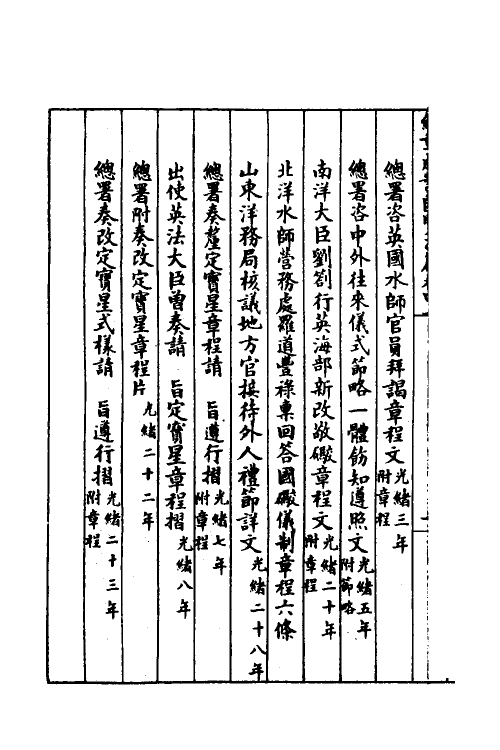 總署咨英國水師官員拜謁章程文 光緒三年 附章程
總署咨中外往來儀式節略一體飭知遵照文 光緒五年 附節略
南洋大臣劉劄行英海部新改敬礮章程文 光緒二十年 附章程
北洋水師營務處羅道豐祿稟回答國礮儀制章程六條
山東洋務局核議地方官接待外人禮節詳文 光緒二十八年
總署奏釐定寶星章程請 旨遵行摺 光緒七年 附章程
出使英法大臣曾奏請 旨定寶星章程摺 光緒八年
總署附奏改定寶星章程片 光緒二十二年
總署奏改定寶星式樣請 旨遵行摺 光緒二十三年 附章程